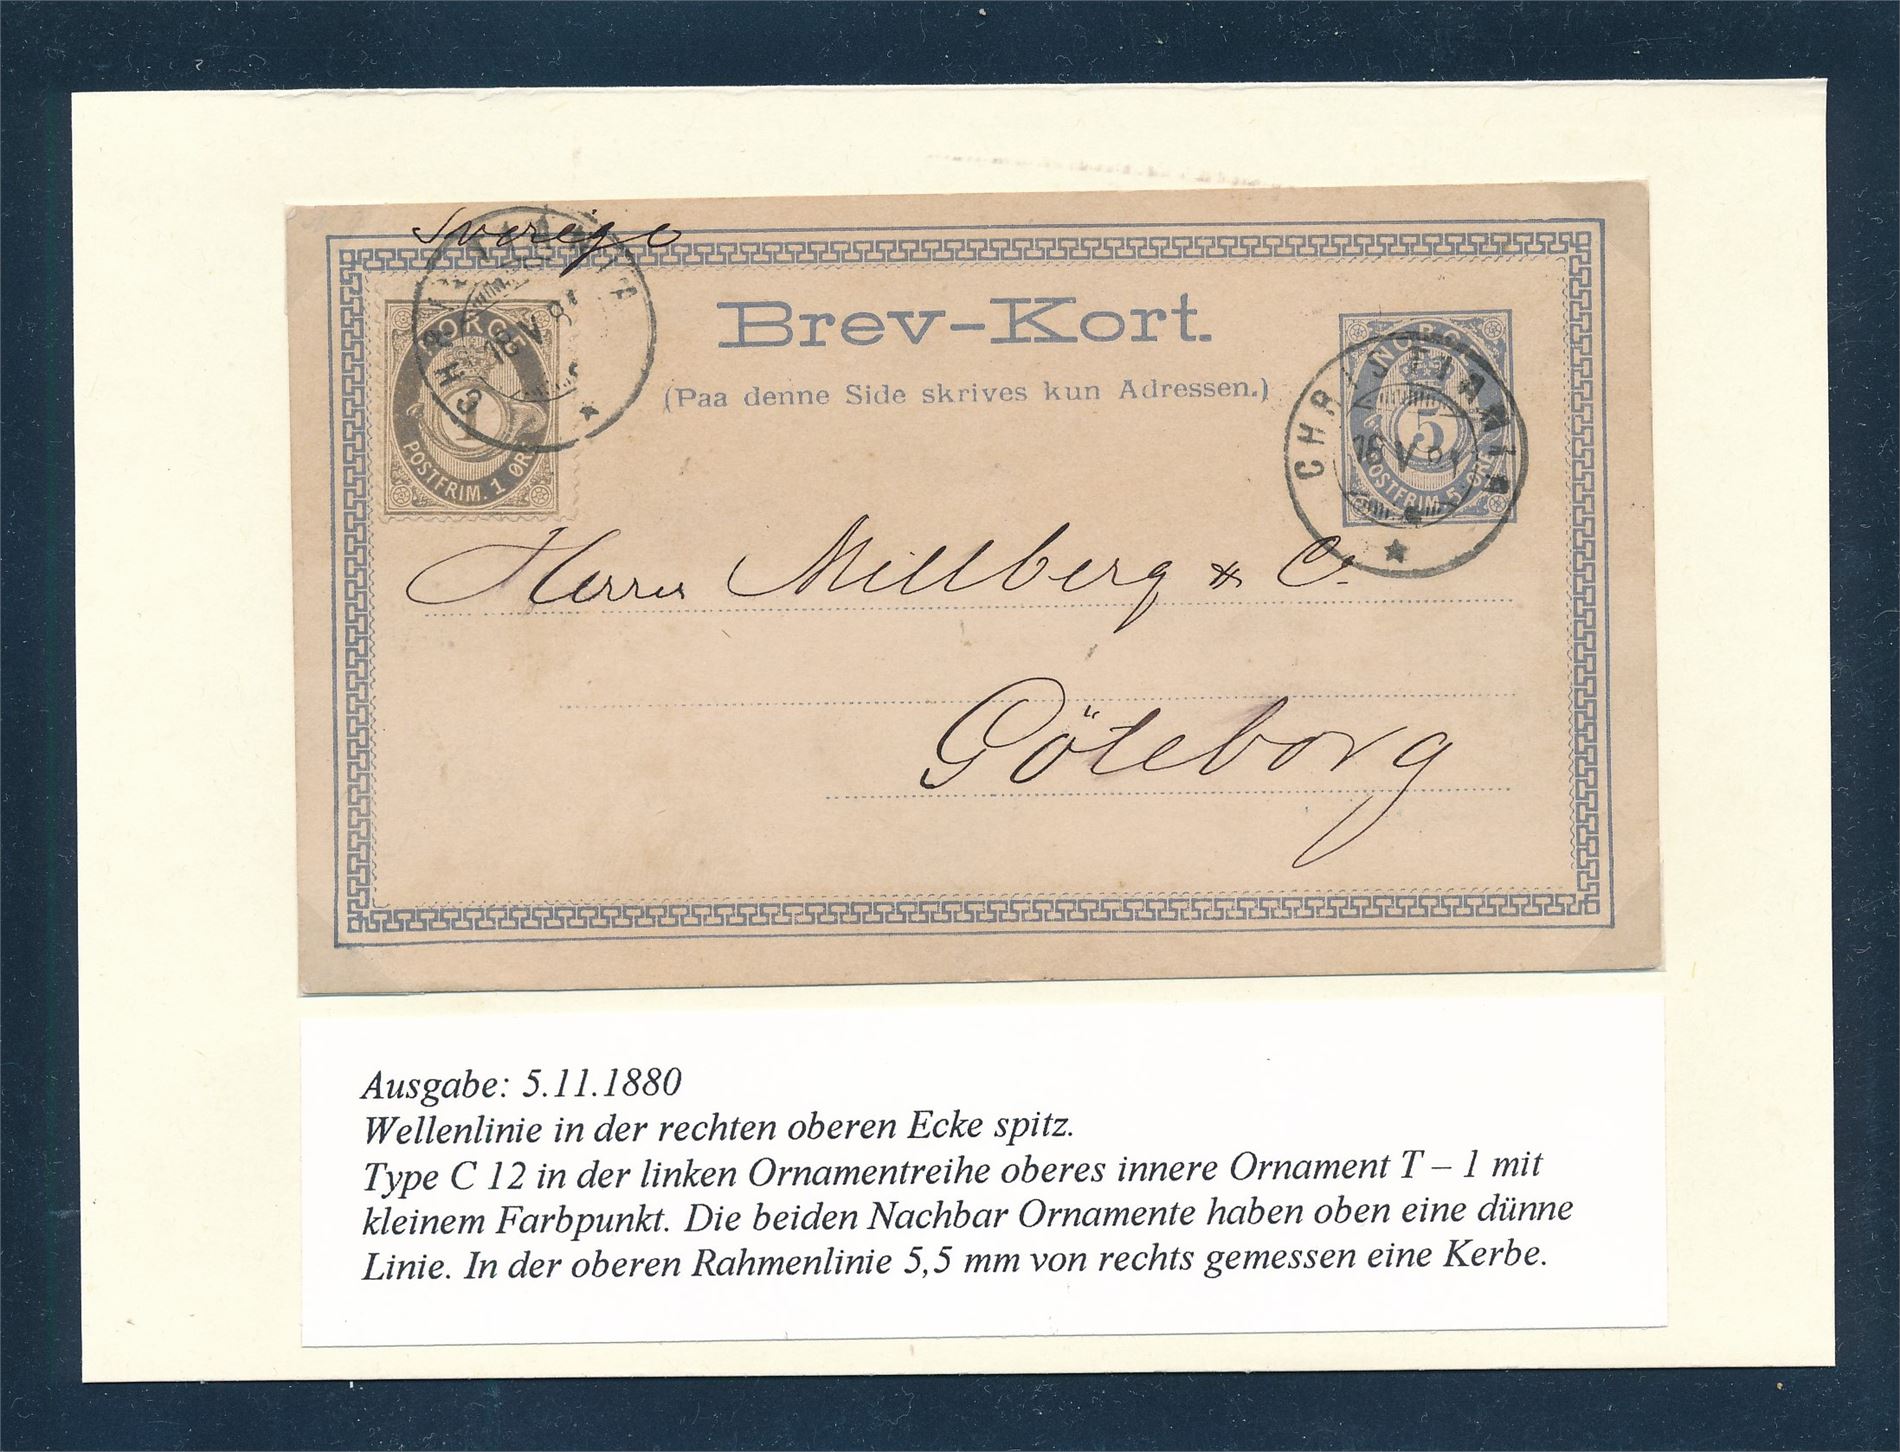 Sverige
Brev-Kort.
(Paa denne Side skrives kun Adressen.)
NORGE
POSTFRIM. 1 ØRE
CHRISTIANIA
18 V 8
NORGE
5
POSTFRIM. 5 ØRE
CHRISTIANIA
V 81
Herrer Millberg & Co.
Göteborg
Ausgabe: 5.11.1880
Wellenlinie in der rechten oberen Ecke spitz.
Type C 12 in der linken Ornamentreihe oberes innere Ornament T – 1 mit
kleinem Farbpunkt. Die beiden Nachbar Ornamente haben oben eine dünne
Linie. In der oberen Rahmenlinie 5,5 mm von rechts gemessen eine Kerbe.